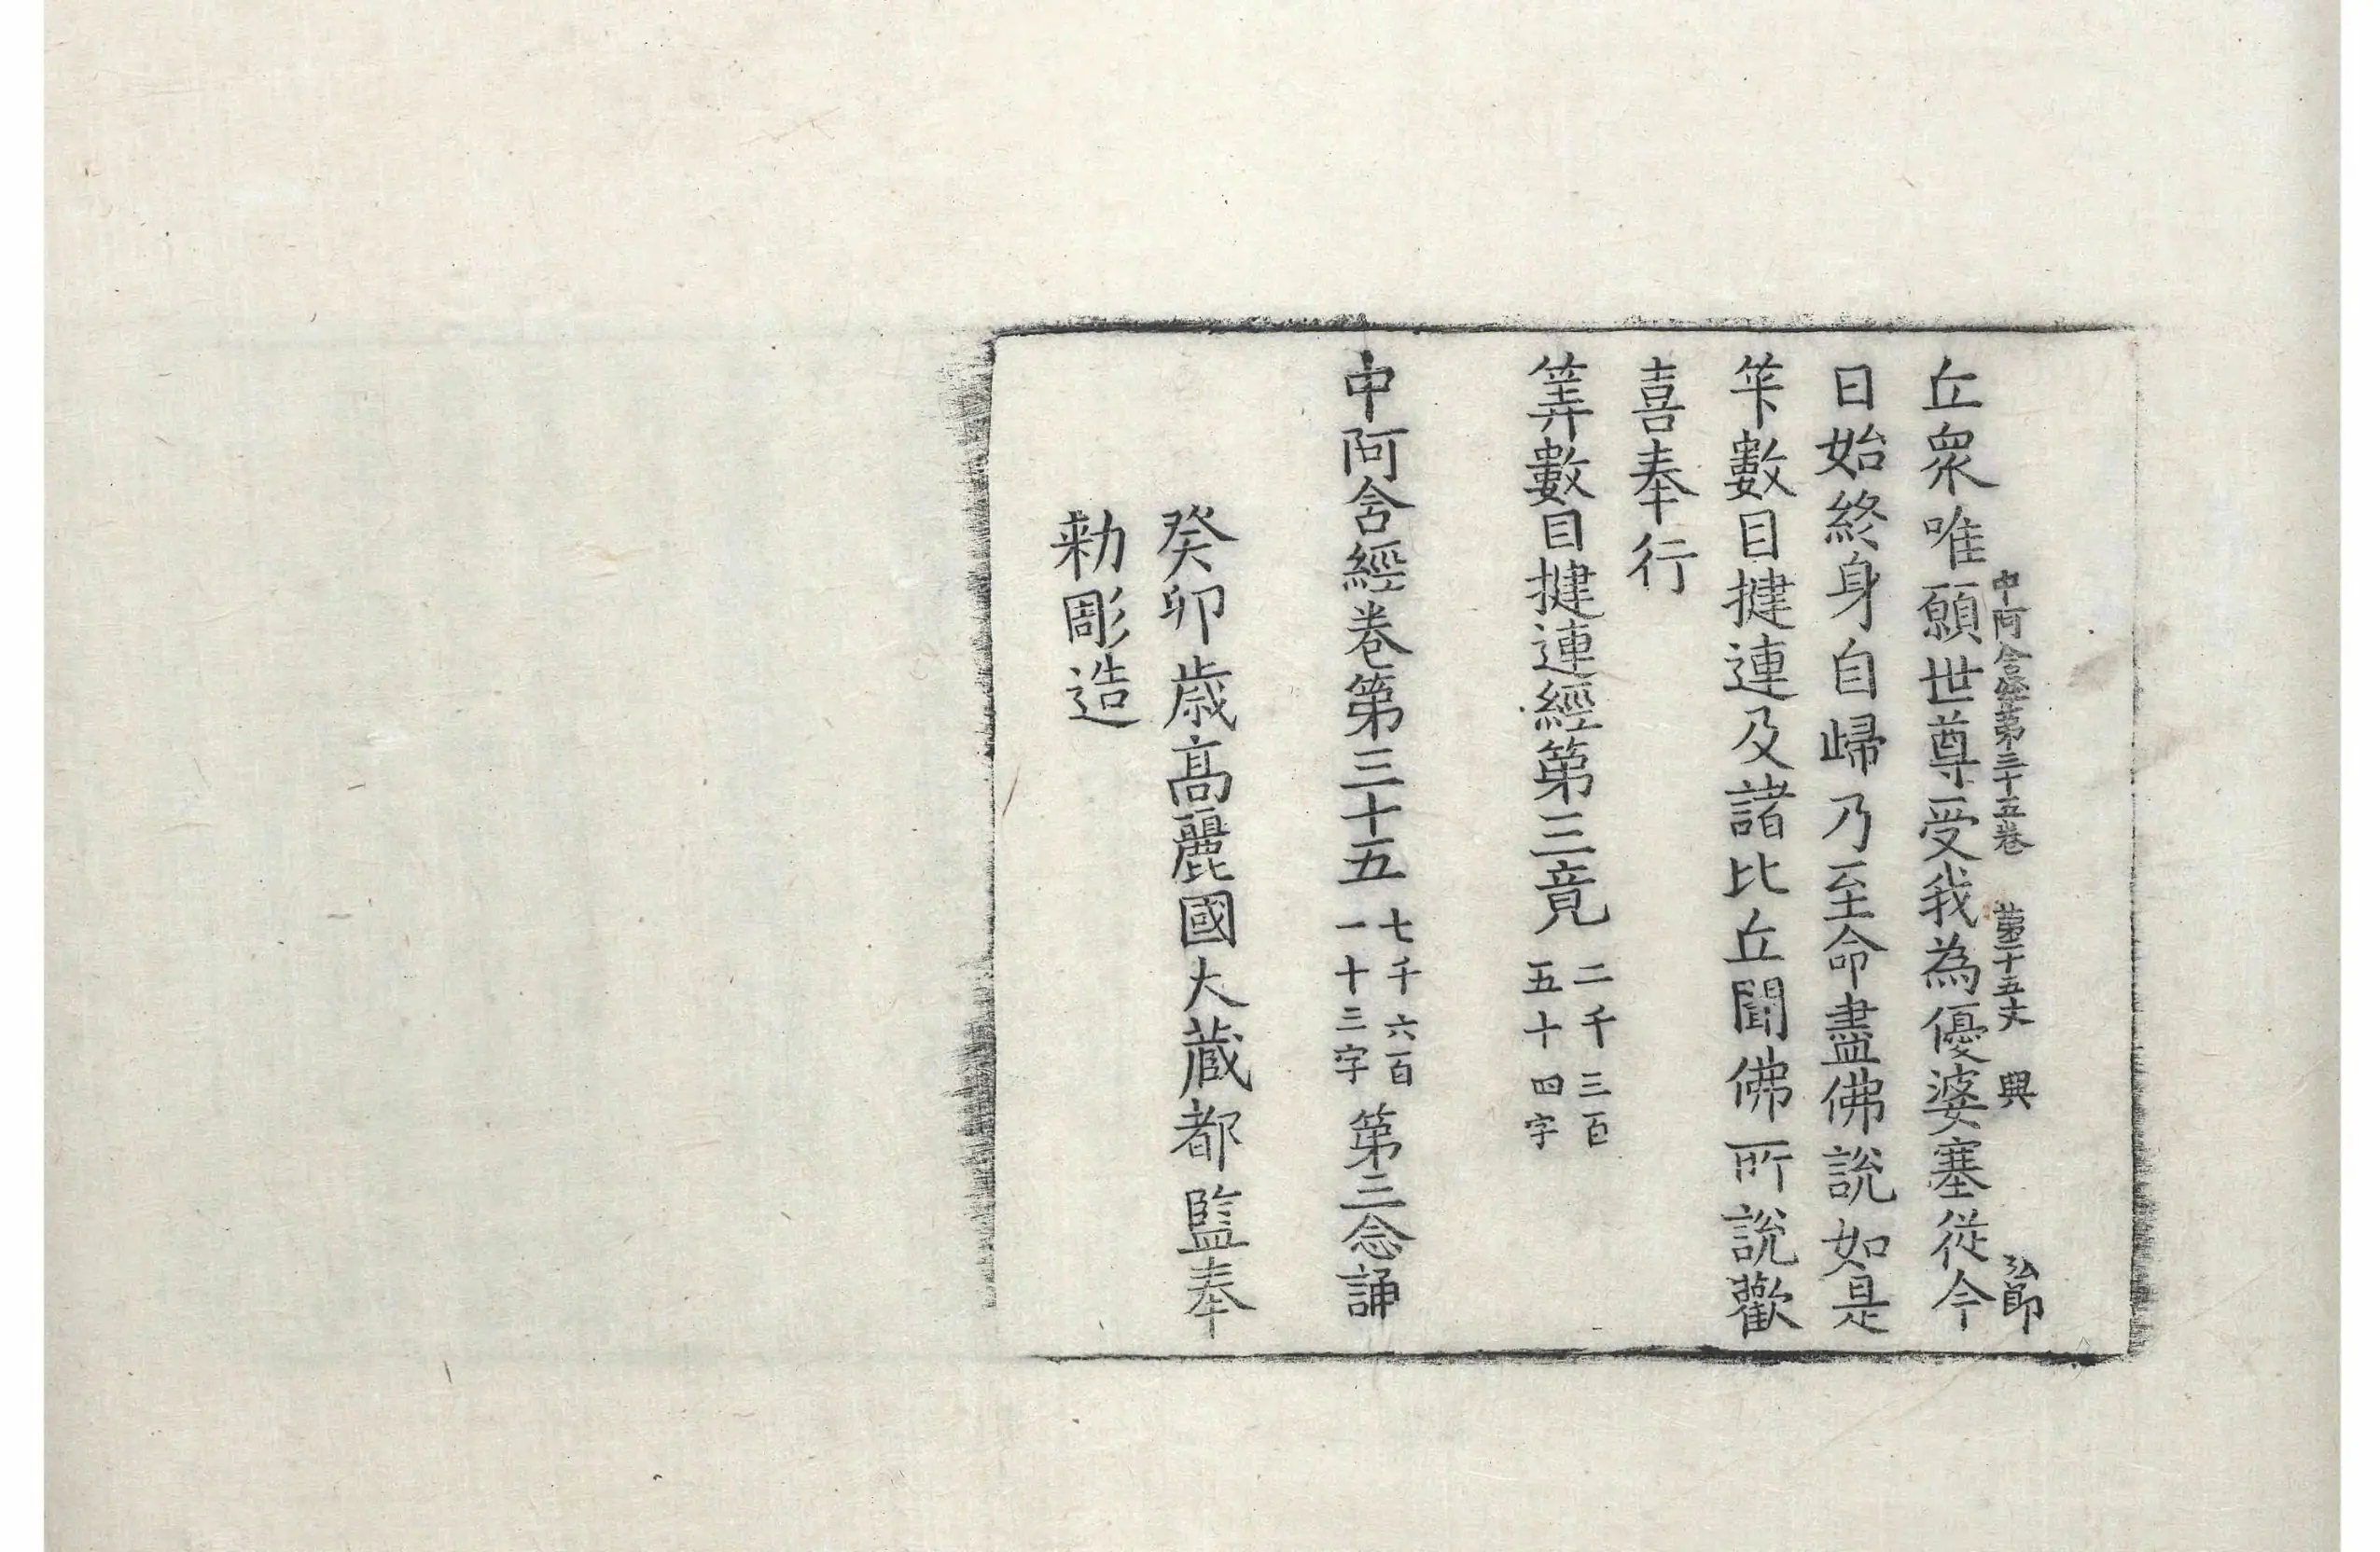 中阿含經第三十五卷　第二十五丈　興　弘節
丘衆唯願世尊受我為優婆塞從今
日始終身自歸乃至命盡佛說如是
笇數目揵連及諸比丘聞佛所說歡
喜奉行
筭數目揵連經第三竟二千三百五十四字
中阿含經卷第三十五七千六百一十三字第三念誦
癸卯歲高麗國大藏都監奉
勅彫造